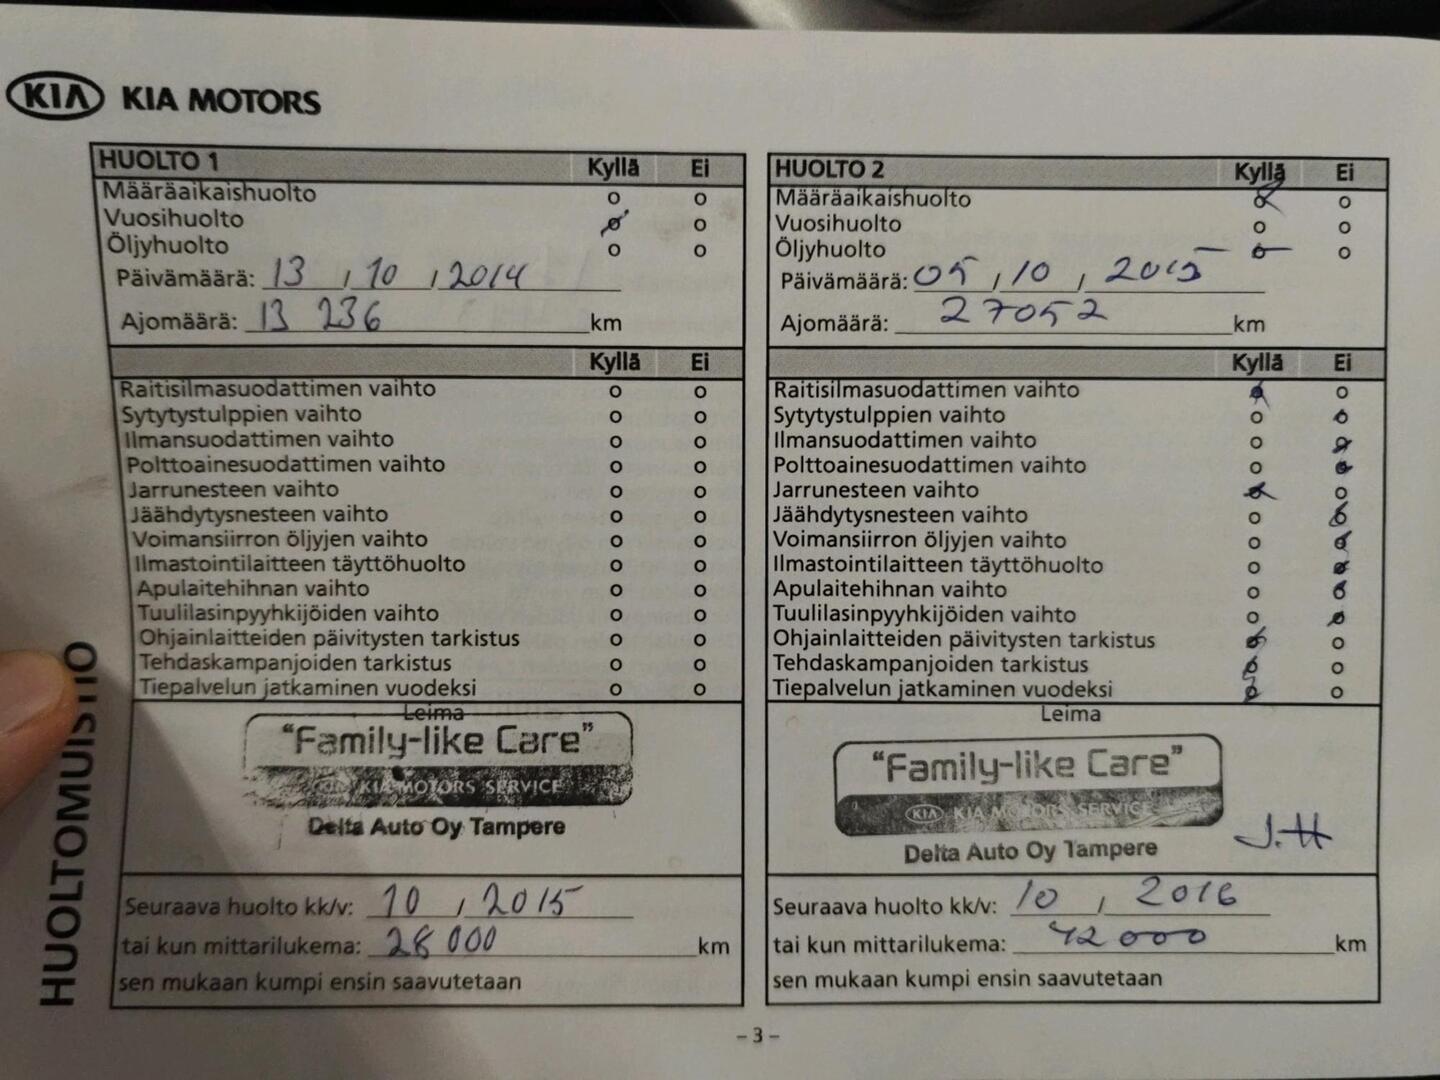 KIA KIA MOTORS
HUOLTO 1 Kyllä Ei
Määräaikaishuolto o o
Vuosihuolto o o
Öljyhuolto o o
Päivämäärä: 13 / 10 / 2014
Ajomäärä: 13 236 km
Kyllä Ei
Raitisilmasuodattimen vaihto o o
Sytytystulppien vaihto o o
Ilmansuodattimen vaihto o o
Polttoainesuodattimen vaihto o o
Jarrunesteen vaihto o o
Jäähdytysnesteen vaihto o o
Voimansiirron öljyjen vaihto o o
Ilmastointilaitteen täyttöhuolto o o
Apulaitehihnan vaihto o o
Tuulilasinpyyhkijöiden vaihto o o
Ohjainlaitteiden päivitysten tarkistus o o
Tehdaskampanjoiden tarkistus o o
Tiepalvelun jatkaminen vuodeksi o o
Leima
"Family-like Care"
KIA KIA MOTORS SERVICE
Delta Auto Oy Tampere
Seuraava huolto kk/v: 10 / 2015
tai kun mittarilukema: 28 000 km
sen mukaan kumpi ensin saavutetaan
HUOLTO 2 Kyllä Ei
Määräaikaishuolto o o
Vuosihuolto o o
Öljyhuolto o o
Päivämäärä: 05 / 10 / 2015
Ajomäärä: 27052 km
Kyllä Ei
Raitisilmasuodattimen vaihto o o
Sytytystulppien vaihto o o
Ilmansuodattimen vaihto o o
Polttoainesuodattimen vaihto o o
Jarrunesteen vaihto o o
Jäähdytysnesteen vaihto o o
Voimansiirron öljyjen vaihto o o
Ilmastointilaitteen täyttöhuolto o o
Apulaitehihnan vaihto o o
Tuulilasinpyyhkijöiden vaihto o o
Ohjainlaitteiden päivitysten tarkistus o o
Tehdaskampanjoiden tarkistus o o
Tiepalvelun jatkaminen vuodeksi o o
Leima
"Family-like Care"
KIA KIA MOTORS SERVICE
Delta Auto Oy Tampere
J.H
Seuraava huolto kk/v: 10 / 2016
tai kun mittarilukema: 42000 km
sen mukaan kumpi ensin saavutetaan
HUOLTOMUISTIO
- 3 -